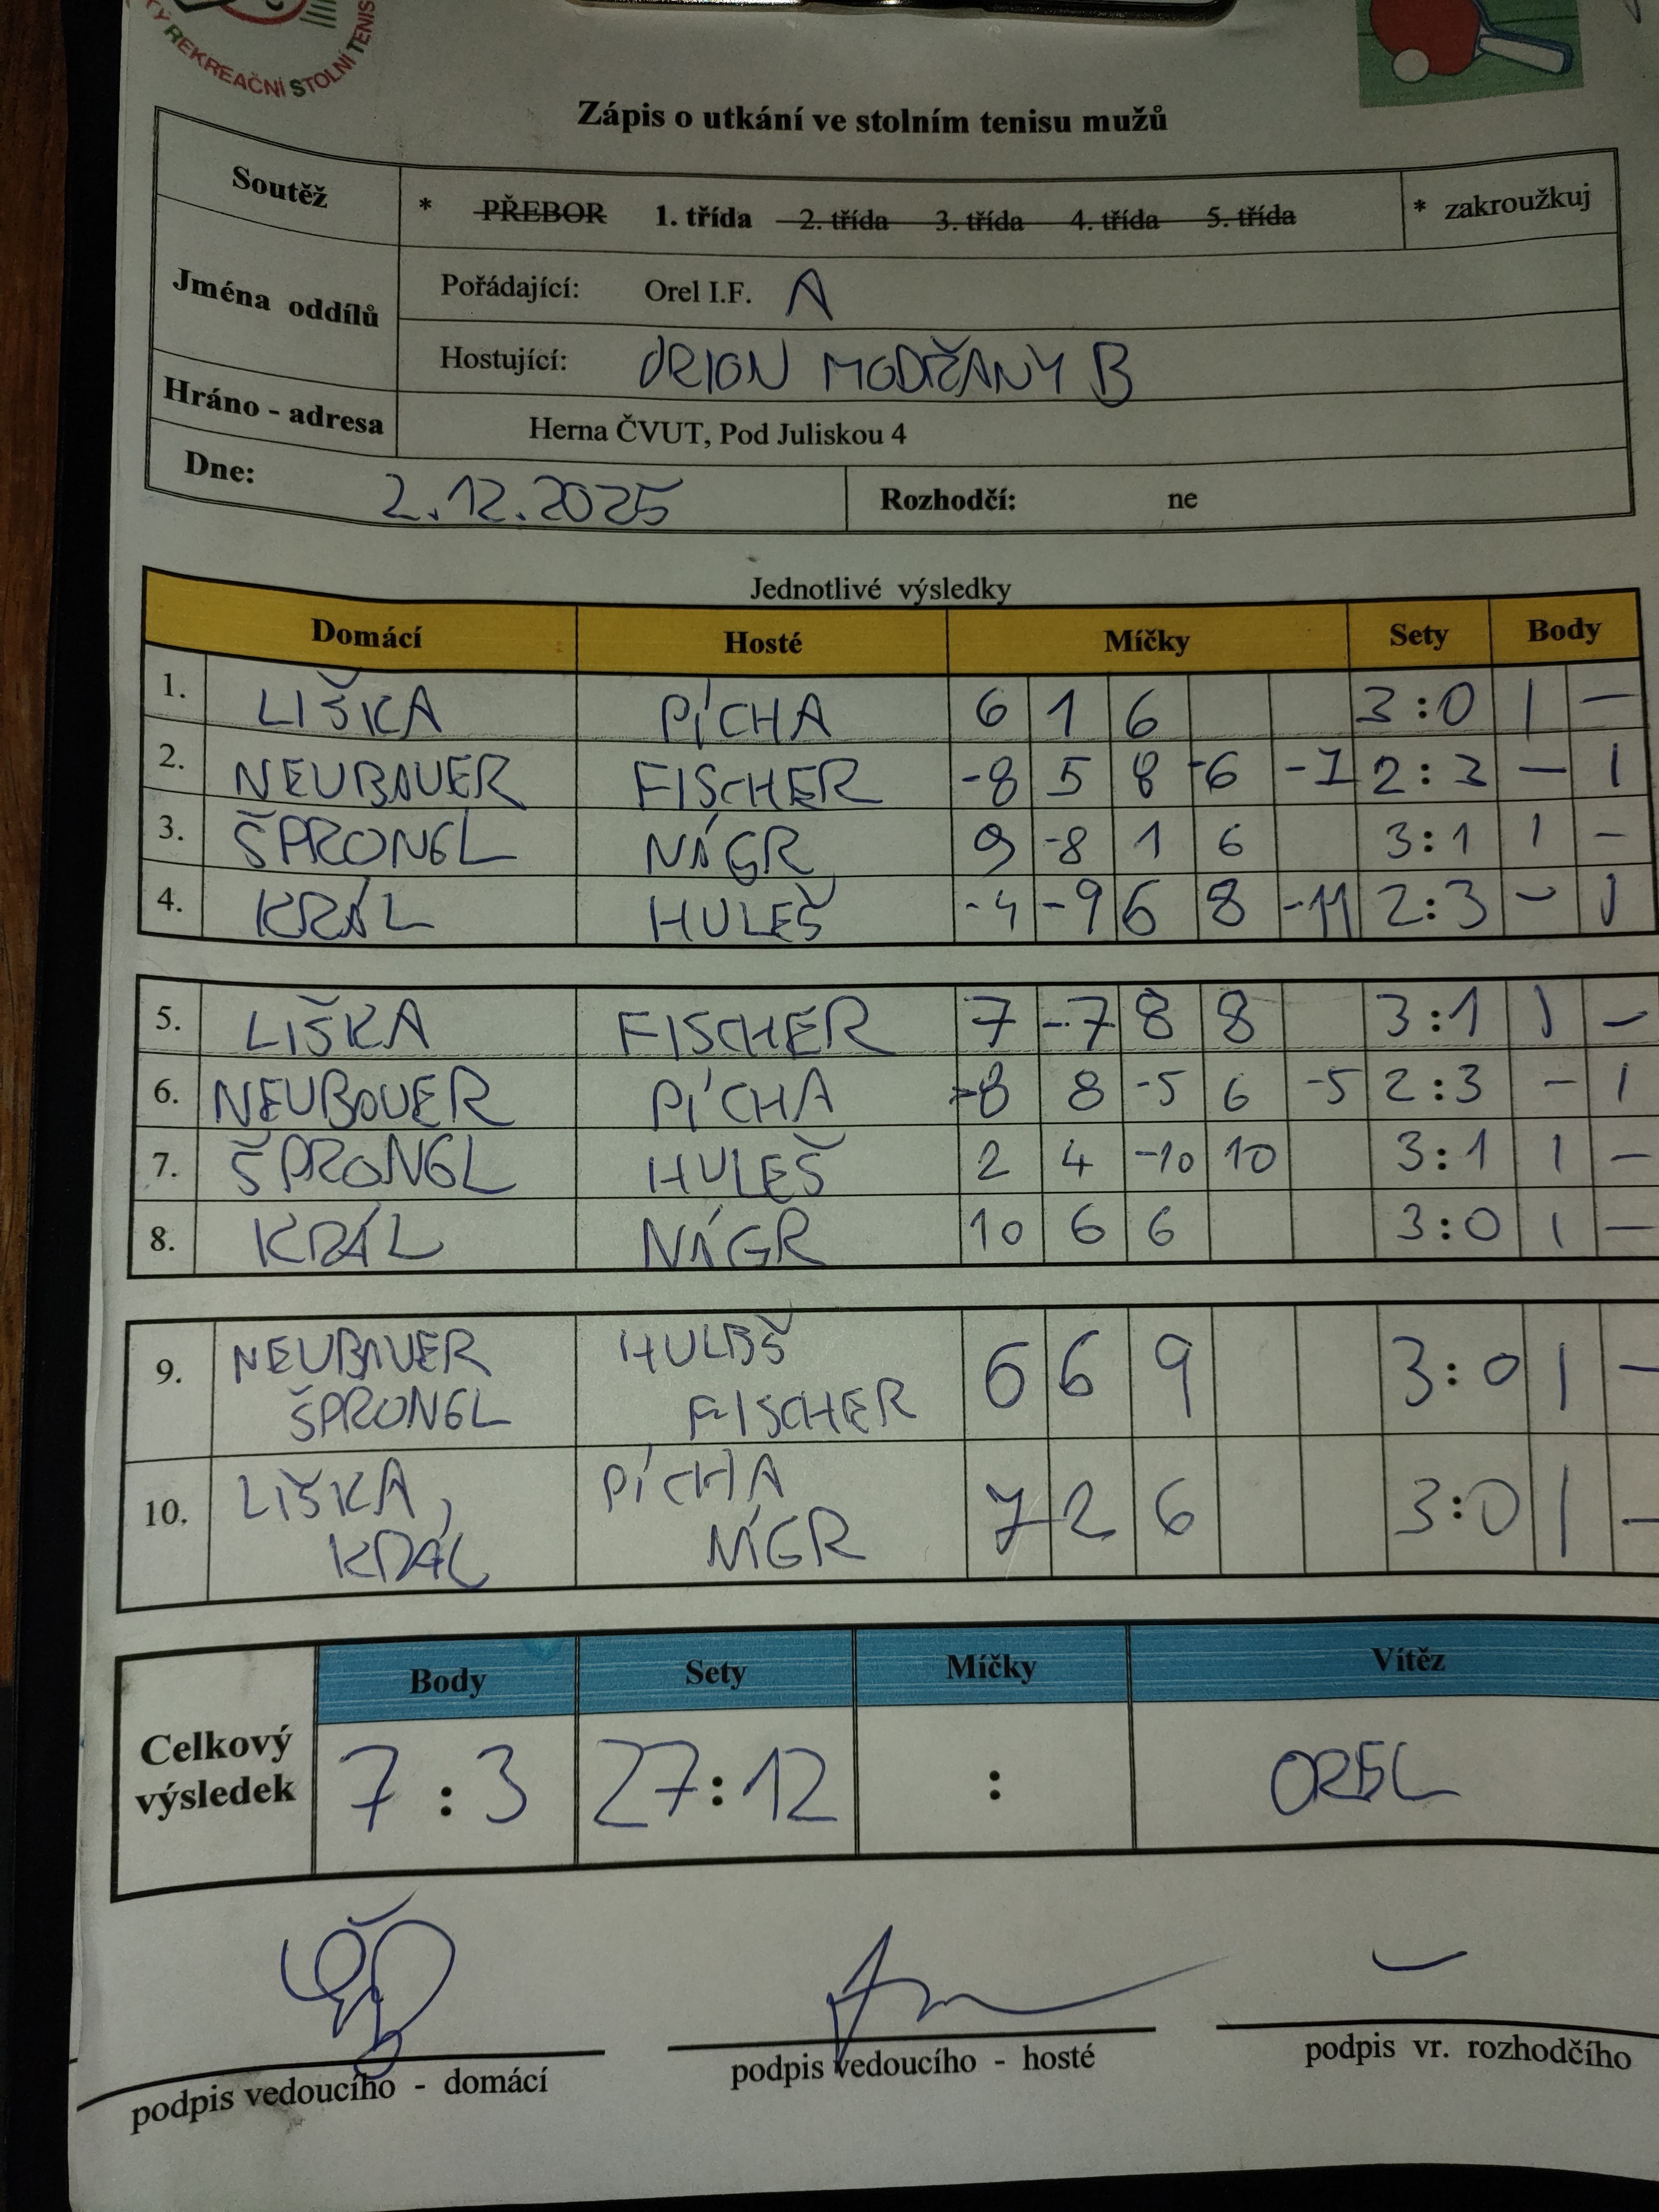 KÝ REKREAČNÍ STOLNÍ TENIS
Zápis o utkání ve stolním tenisu mužů
Soutěž * PŘEBOR 1. třída 2. třída 3. třída 4. třída 5. třída * zakroužkuj
Jména oddílů
Pořádající: Orel I.F. A
Hostující: ORION MODŘANY B
Hráno - adresa Herna ČVUT, Pod Juliskou 4
Dne: 2.12.2025 Rozhodčí: ne
Jednotlivé výsledky
Domácí Hosté Míčky Sety Body
1. LIŠKA PÍCHA 6 1 6 3:0 1 –
2. NEUBAUER FISCHER -8 5 8 -6 -7 2:3 – 1
3. ŠPRONGL NÁGR 9 -8 1 6 3:1 1 –
4. KRÁL HULEŠ -4 -9 6 8 -11 2:3 – 1
5. LIŠKA FISCHER 7 -7 8 8 3:1 1 –
6. NEUBAUER PÍCHA -8 8 -5 6 -5 2:3 – 1
7. ŠPRONGL HULEŠ 2 4 -10 10 3:1 1 –
8. KRÁL NÁGR 10 6 6 3:0 1 –
9. NEUBAUER HULEŠ 6 6 9 3:0 1 –
ŠPRONGL FISCHER
10. LIŠKA, PÍCHA 7 2 6 3:0 1 –
KRÁL NÁGR
Body Sety Míčky Vítěz
Celkový výsledek 7:3 27:12 : OREL
podpis vedoucího - domácí podpis vedoucího - hosté podpis vr. rozhodčího